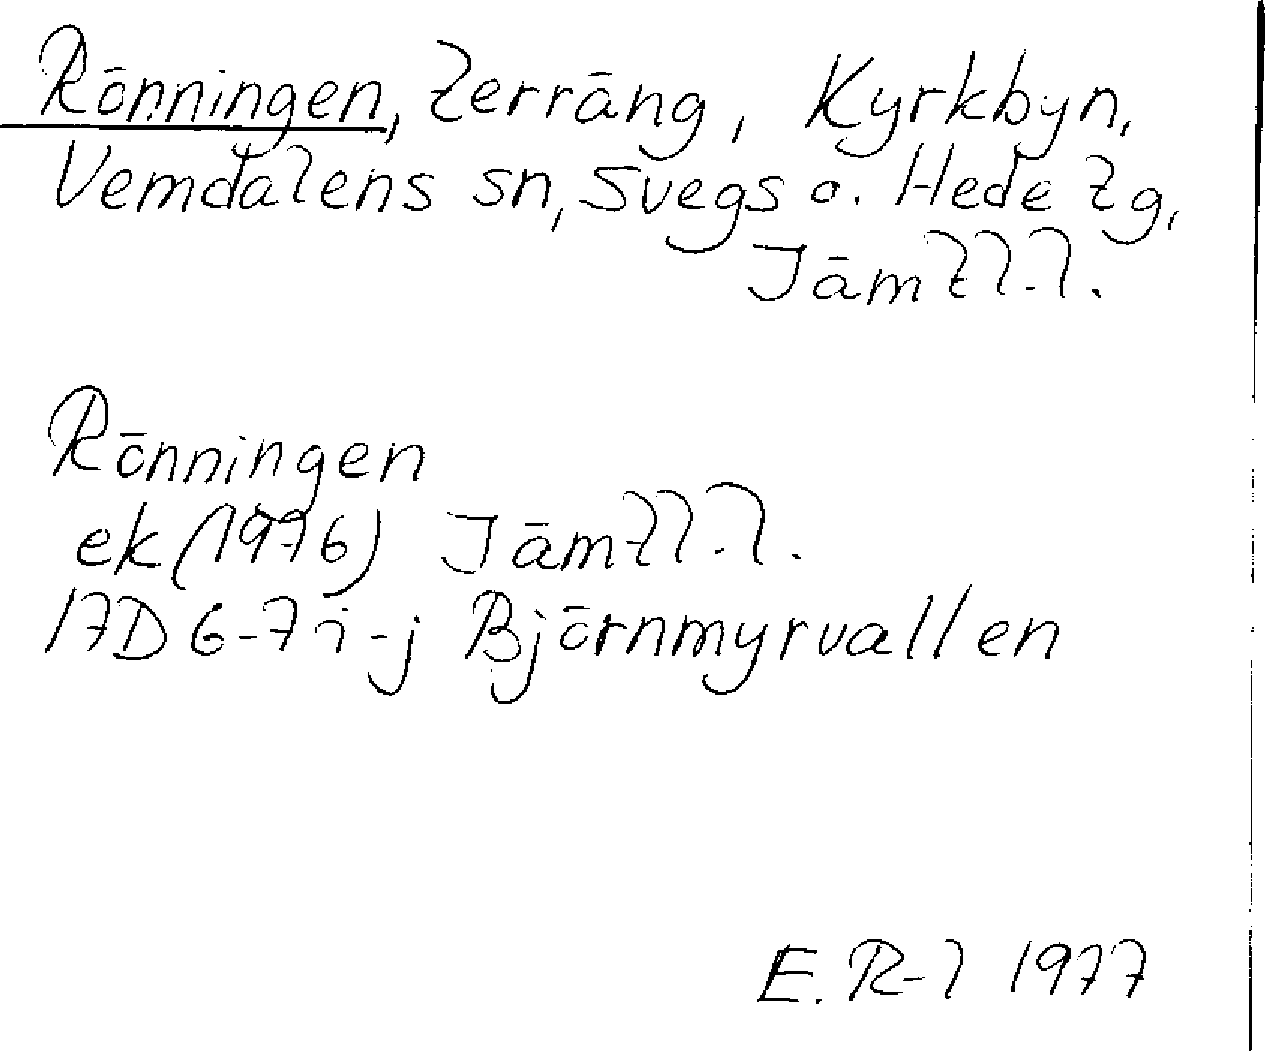 Rönningen, terräng, Kyrkbyn,
Vemdalens sn, Svegs o. Hede tg,
Jämtl.l.
Rönningen
ek (1976) Jämtl.l.
17D 6-7 i-j Björnmyrvallen
E. R-l 1977